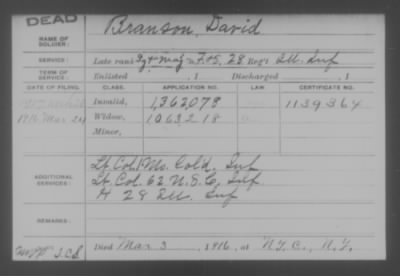 DEAD
NAME OF SOLDIER: Branson, David
SERVICE: Late rank F+S, 28 Reg't Ill. Inf
TERM OF SERVICE: Enlisted , 1 Discharged , 1
DATE OF FILING. CLASS. APPLICATION NO. LAW. CERTIFICATE NO.
Invalid, 1,362,078 1139364
1916 Mar Widow, 1063218
Minor,
ADDITIONAL SERVICES: Lt Col. 1 Mo. Cold. Inf
Lt. Col. 62 U.S.C. Inf
28 Ill. Inf
REMARKS:
Died Mar 3 , 1916, at N.Y.C., N.Y.